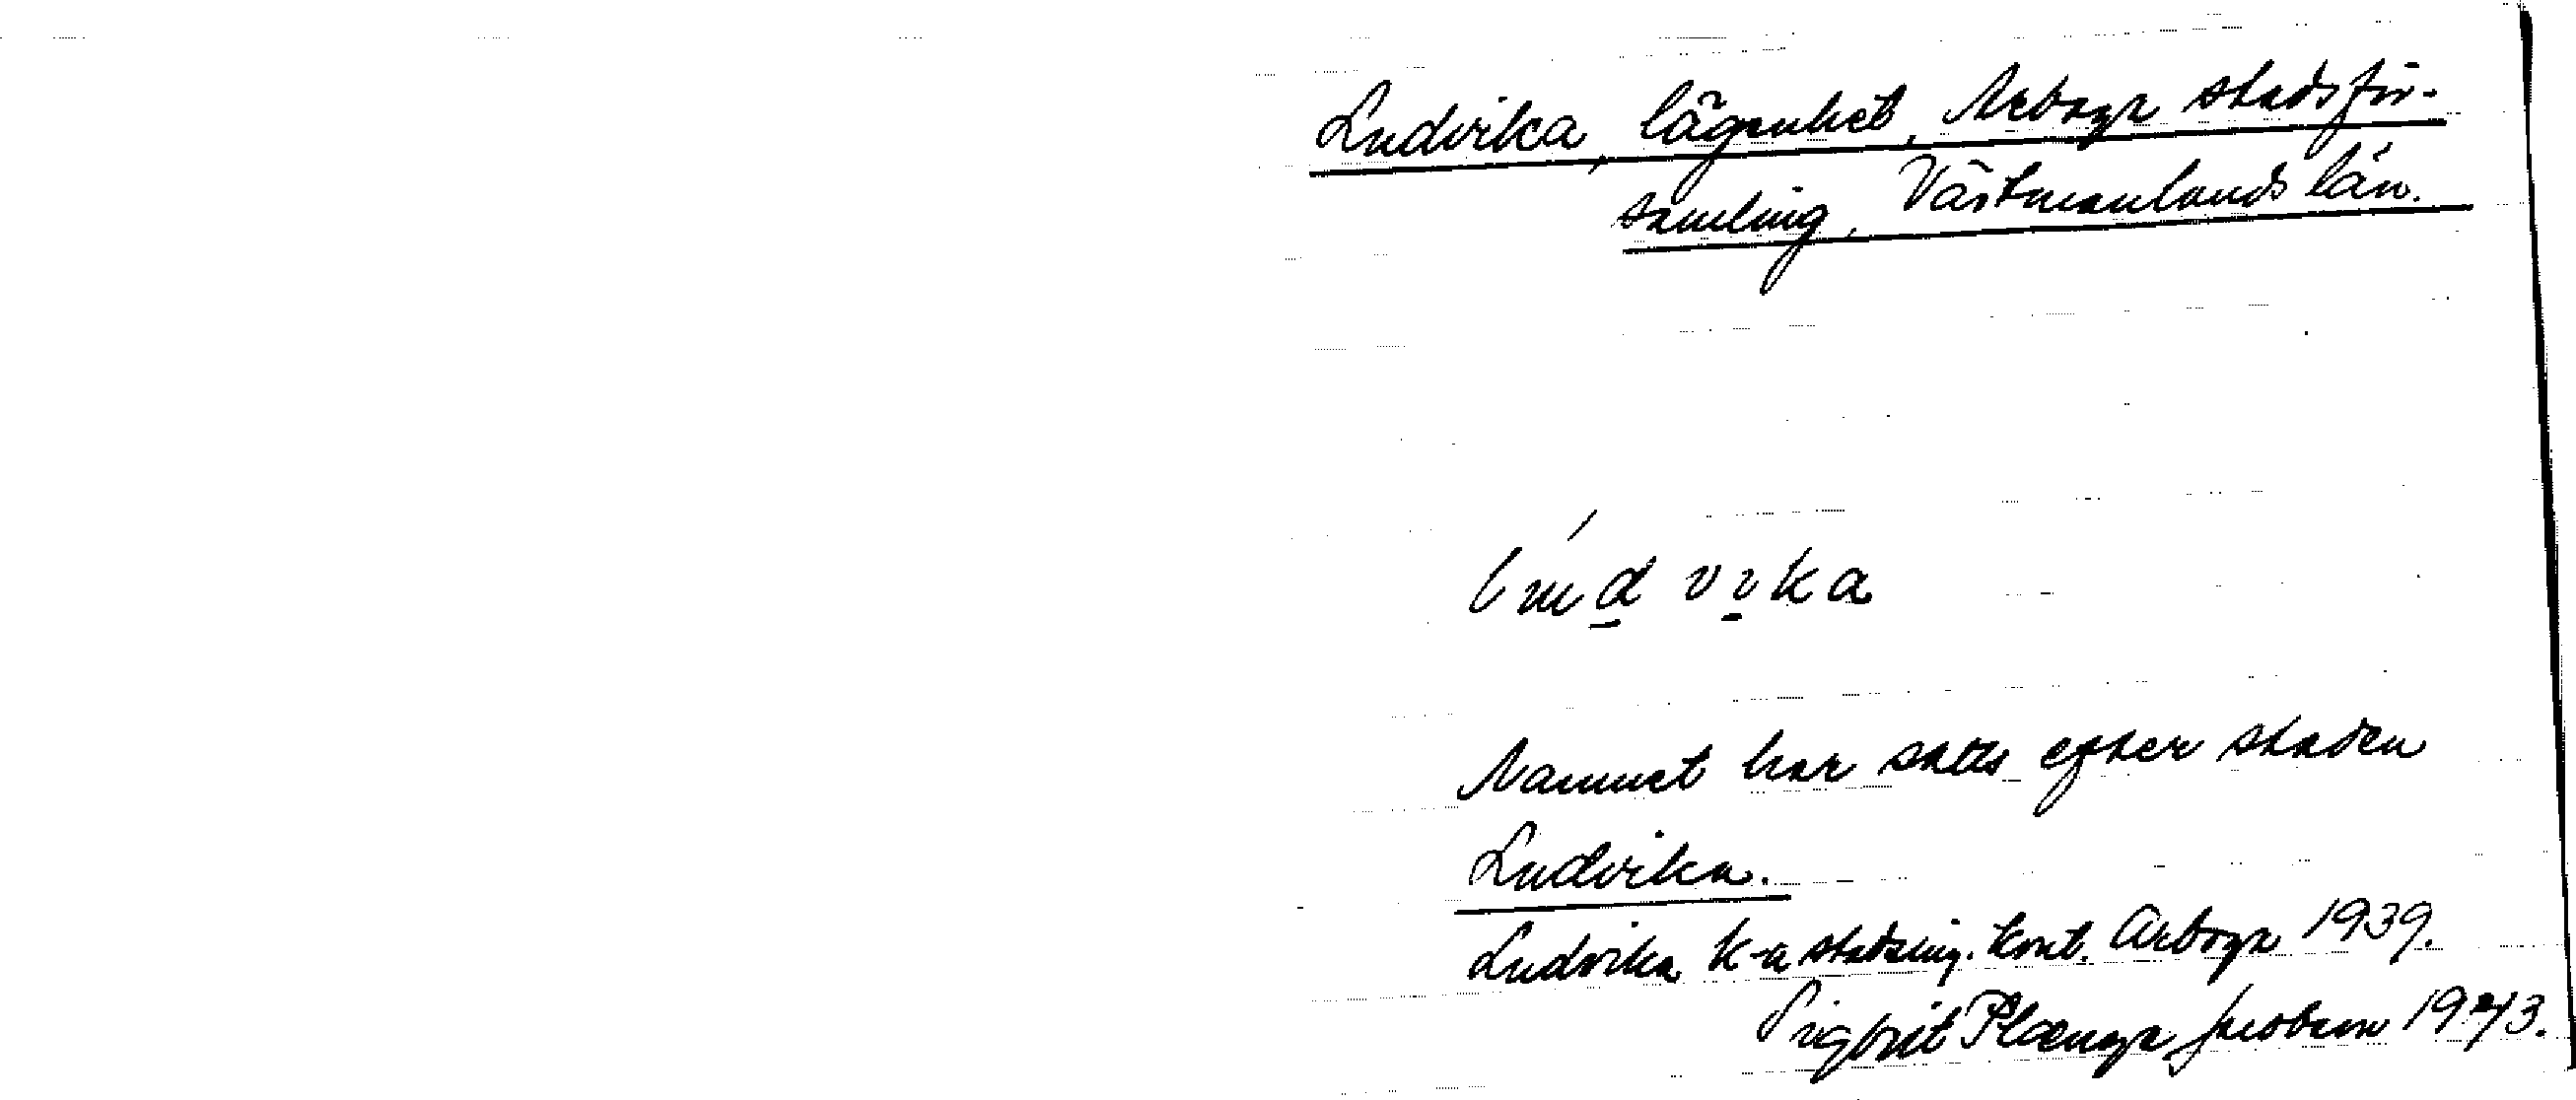 Ludvika, lägenhet, Arboga stadsför-
samling, Västmanlands län.
lúdvika
Namnet har satts efter staden
Ludvika.
Ludvika K-a stadsing. kont. Arboga 1939.
Sigbrit Plænge Jacobson 1943.